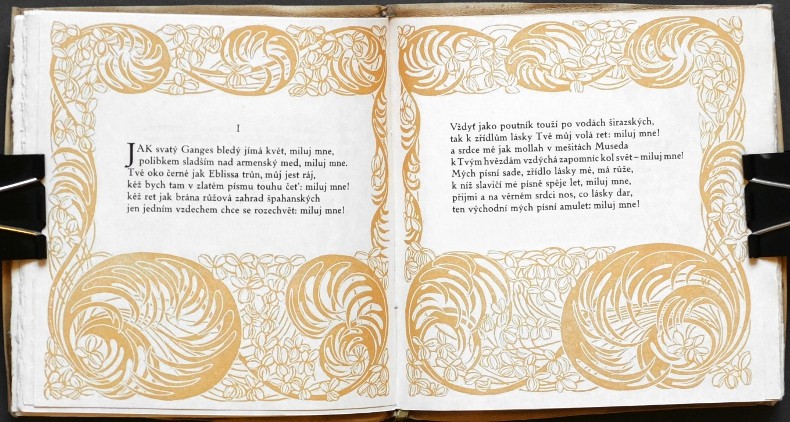 I
JAK svatý Ganges bledý jímá květ, miluj mne,
polibkem sladším nad armenský med, miluj mne.
Tvé oko černé jak Eblissa trůn, můj jest ráj,
kéž bych tam v zlatém písmu touhu čet': miluj mne!
kéž ret jak brána růžová zahrad špahanských
jen jedním vzdechem chce se rozechvět: miluj mne!
Vždyť jako poutník touží po vodách širazských,
tak k zřídlům lásky Tvé můj volá ret: miluj mne!
a srdce mé jak mollah v mešitách Museda
k Tvým hvězdám vzdýchá zapomníc kol svět – miluj mne!
Mých písní sade, zřídlo lásky mé, má růže,
k níž slavičí mé písně spěje let, miluj mne,
přijmi a na věrném srdci nos, co lásky dar,
ten východní mých písní amulet: miluj mne!